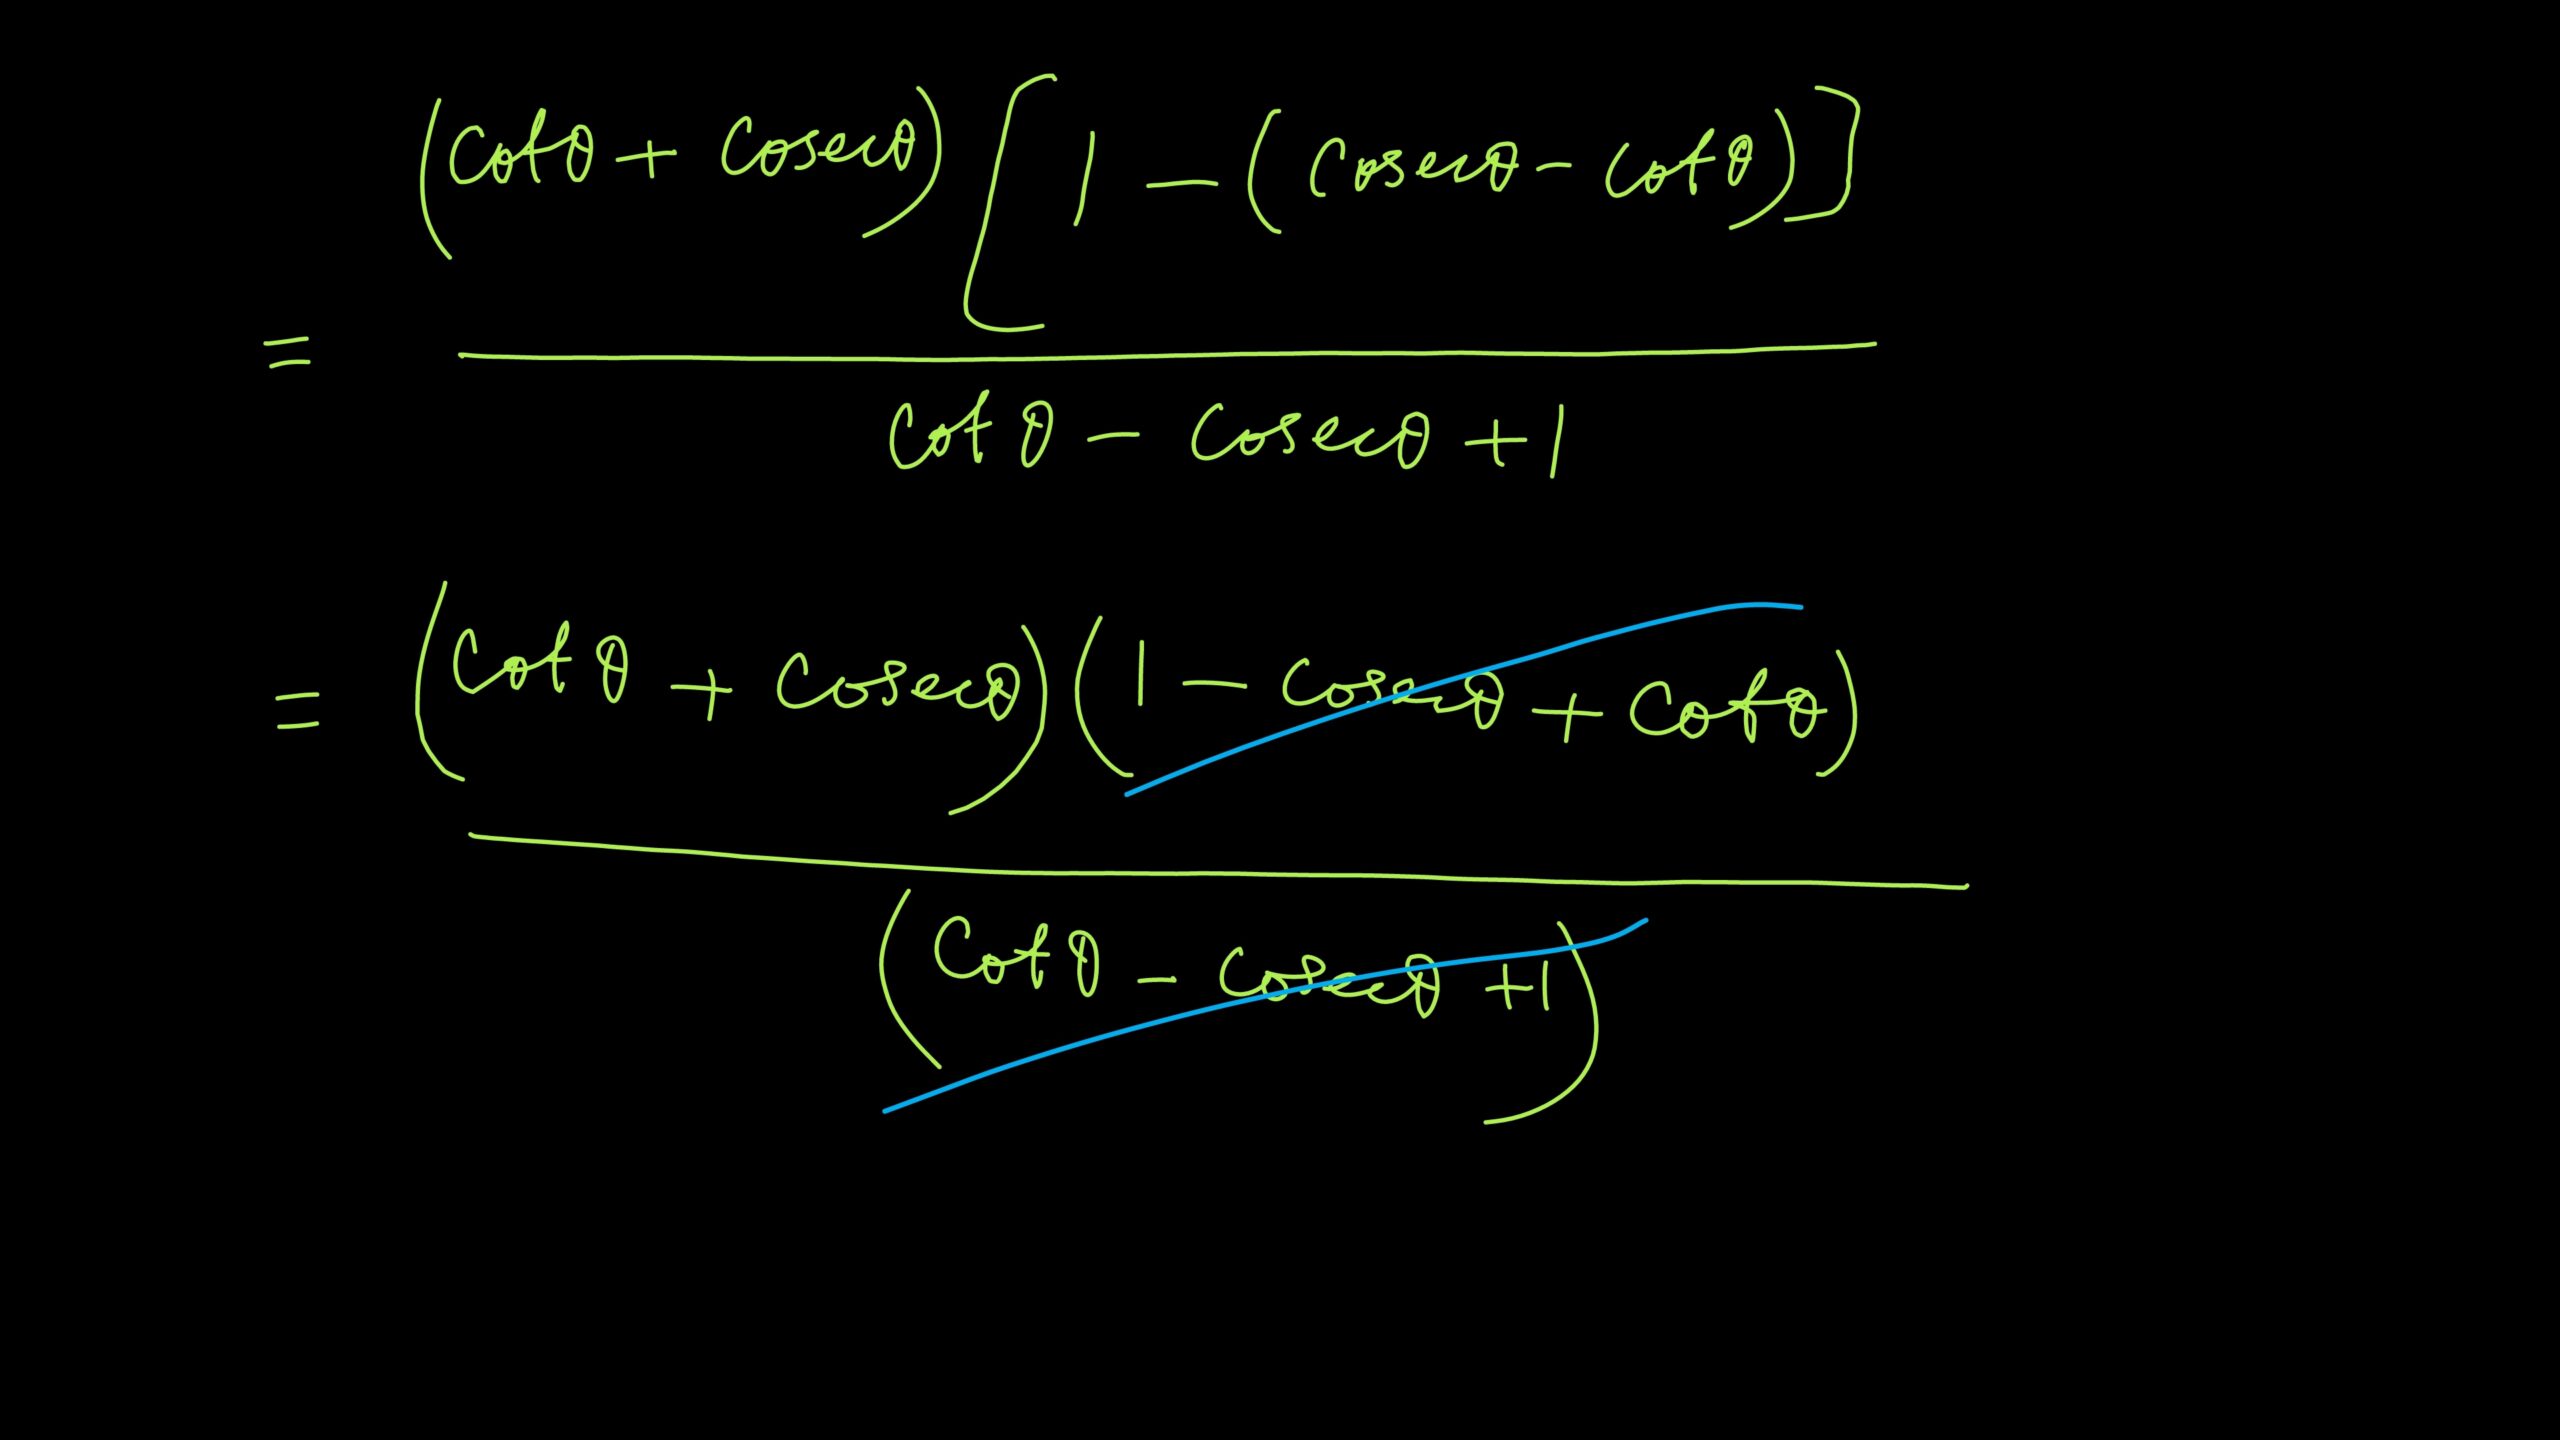 (cotθ + cosecθ) [1 - (cosecθ - cotθ)]
=
cotθ - cosecθ + 1
= (cotθ + cosecθ) (1 - cosecθ + cotθ)
(cotθ - cosecθ + 1)